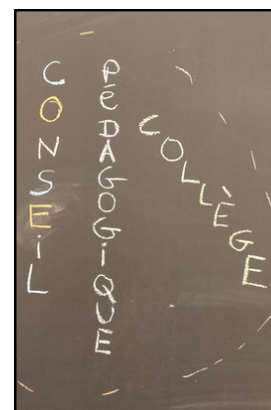 CONSEiL
PéDAGOGiQUE
COLLÈGE